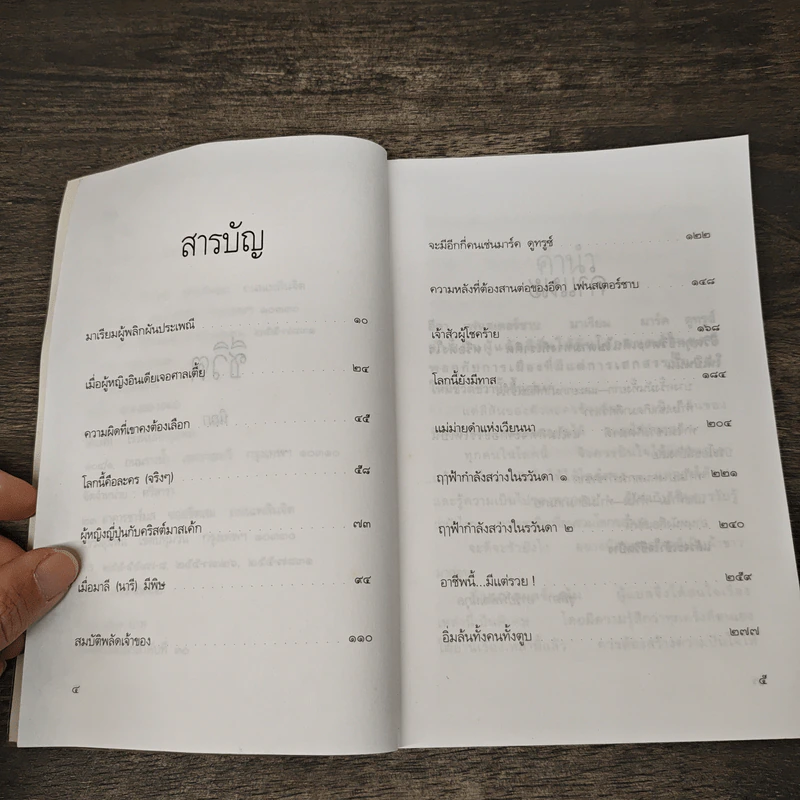 สารบัญ
มาเรียมผู้พลิกผันประเพณี ๑๐
เมื่อผู้หญิงอินเดียเจอศาลเตี้ย ๒๔
ความผิดที่เขาคงต้องเลือก ๔๕
โลกนี้คือละคร (จริงๆ) ๕๘
ผู้หญิงญี่ปุ่นกับคริสต์มาสเค้ก ๗๓
เมื่อมาลี (นารี) มีพิษ ๙๔
สมบัติพลัดเจ้าของ ๑๑๐
๔
จะมีอีกกี่คนเช่นมาร์ค ดูทรูซ์ ๑๒๒
ความหลังที่ต้องสานต่อของอีดา เฟนสเตอร์ชาบ ๑๔๘
เจ้าสัวผู้โชคร้าย ๑๖๘
โลกนี้ยังมีทาส ๑๘๔
แม่ม่ายดำแห่งเวียนนา ๒๐๔
ฤๅฟ้ากำลังสว่างในรวันดา ๑ ๒๒๑
ฤๅฟ้ากำลังสว่างในรวันดา ๒ ๒๔๐
อาชีพนี้...มีแต่รวย ! ๒๕๙
อิ่มล้นทั้งคนทั้งตูบ ๒๗๗
๕